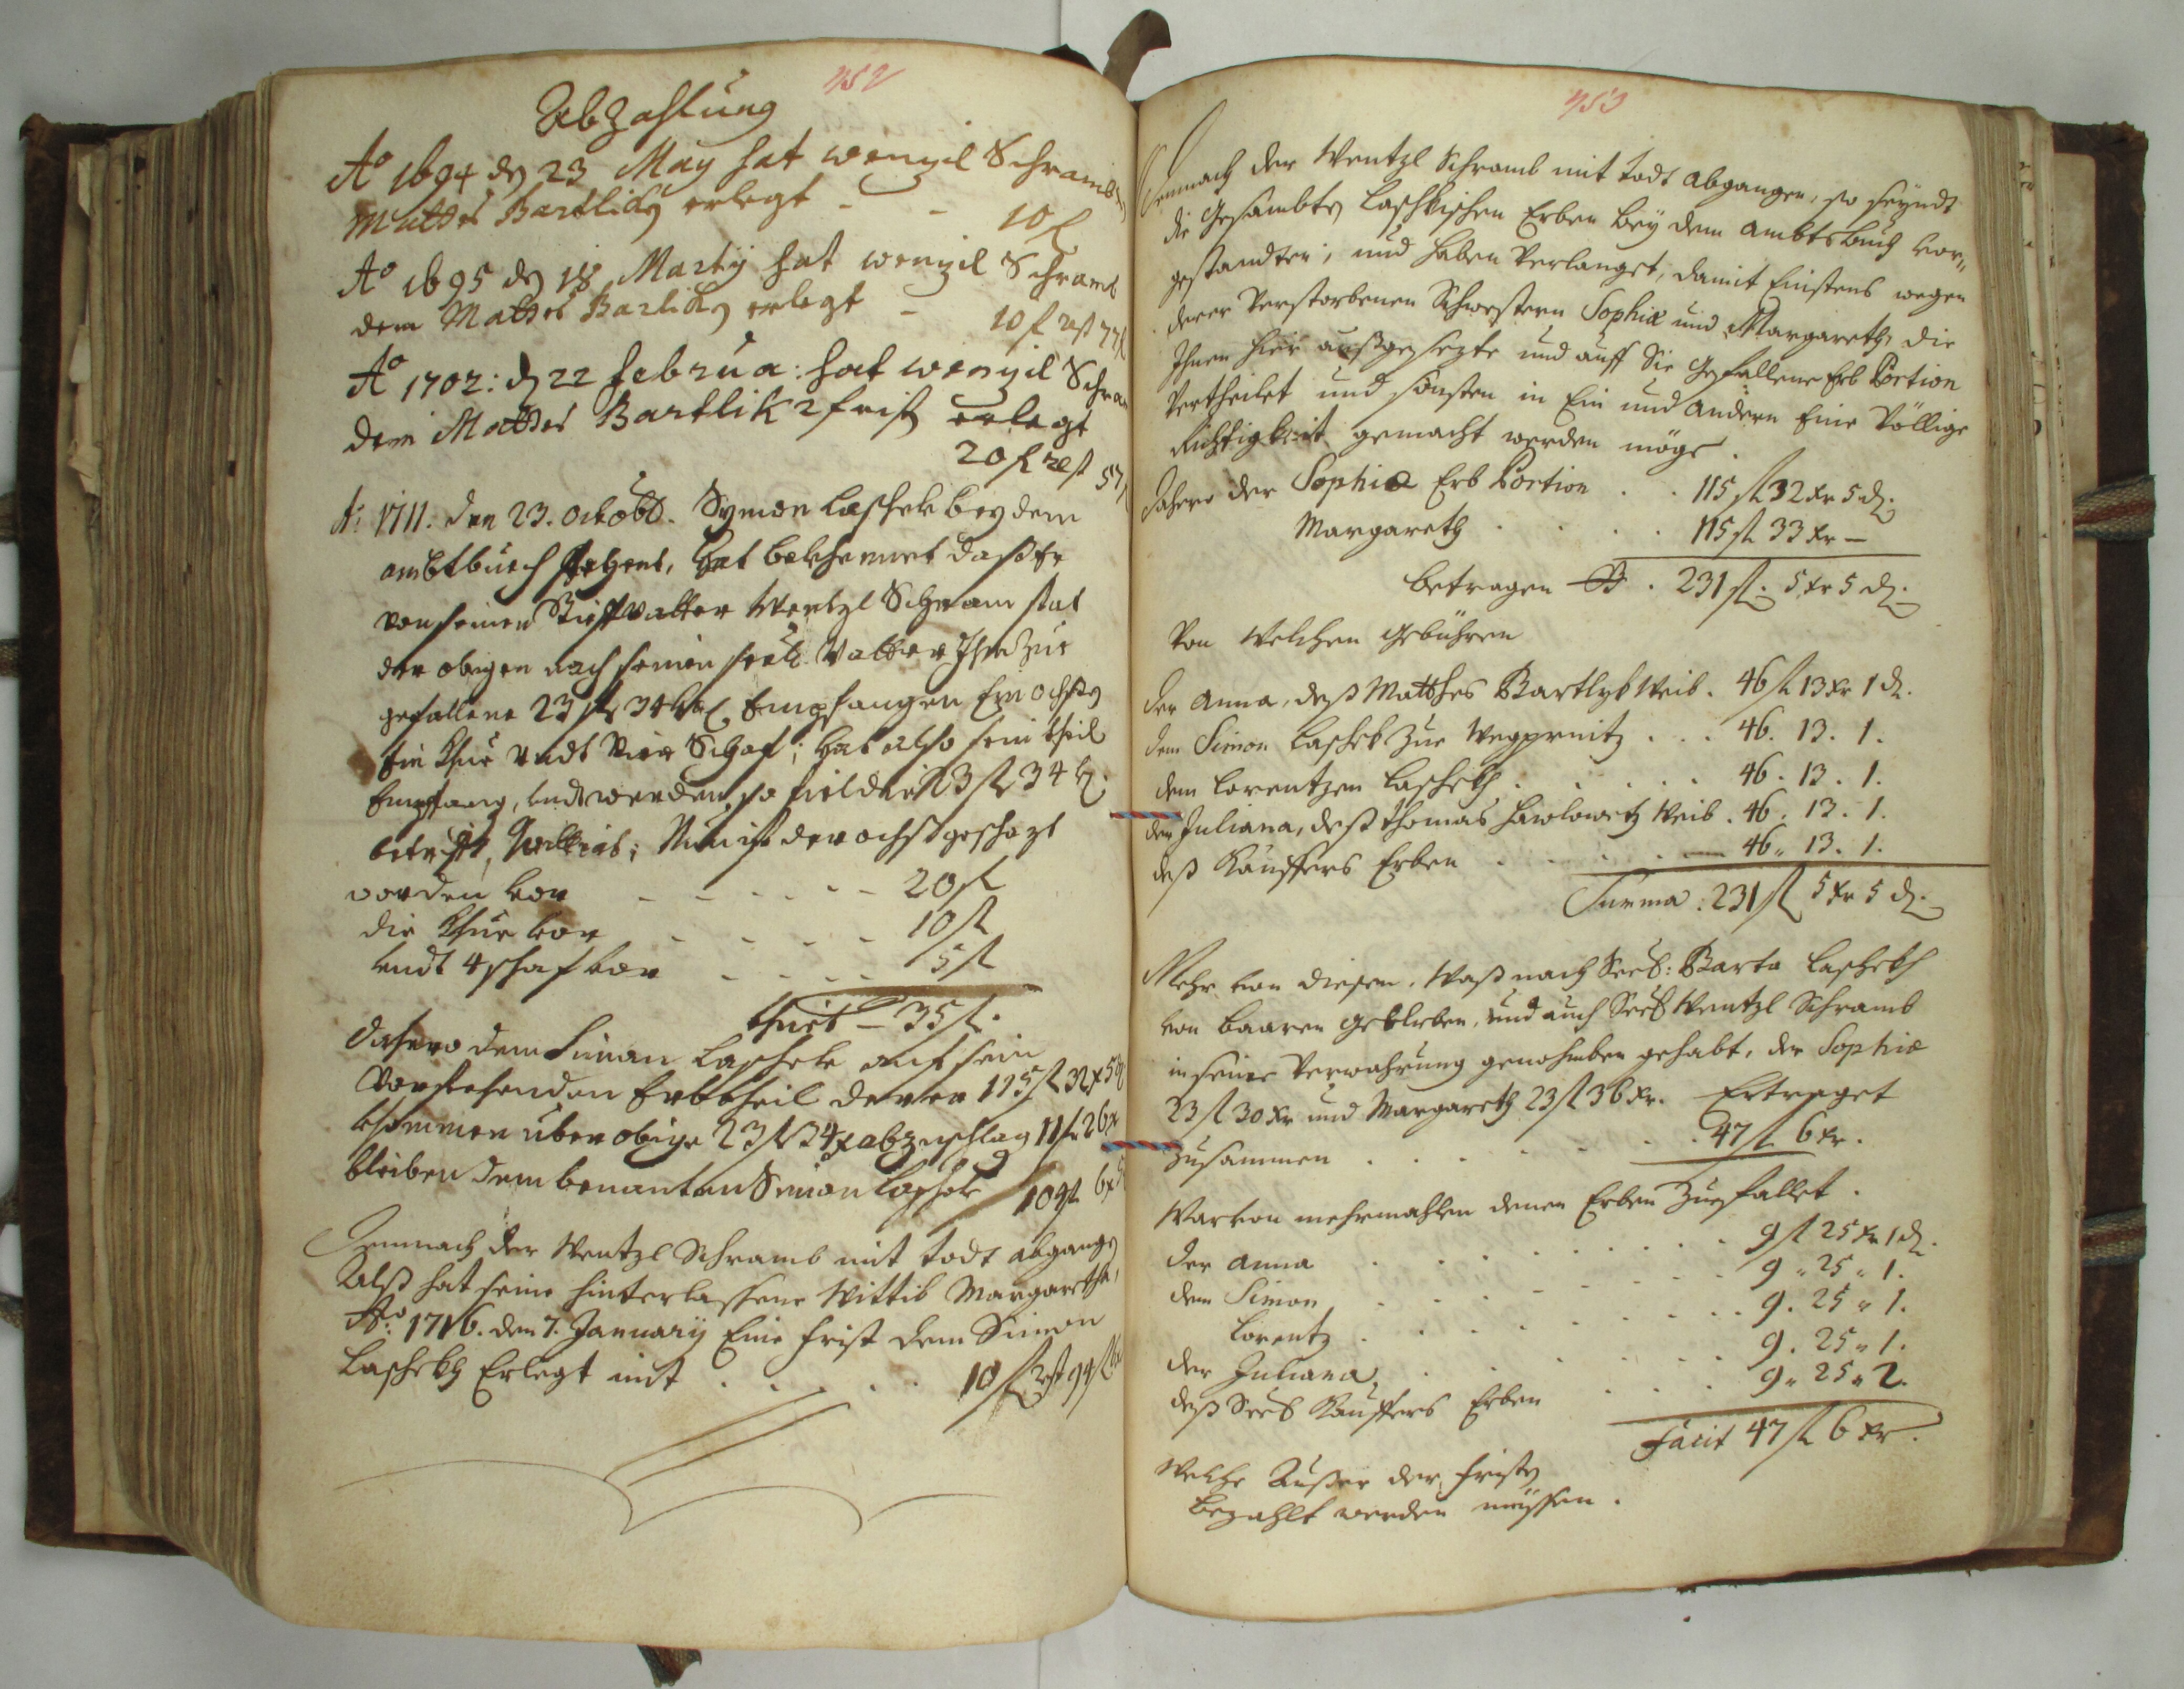 452
Abzahlung
Ao 1694 dn 23 May hat wenzil Schramb
Mattes Bartlick erlegt - - 10 f
Ao 1695 dn 18 Marty hat wenzil Schramb
dem Mattes Barlick erlegt - 10 f rest 77 f
Ao 1702: dn 22 februa: hat wenzil Schra
dem Mattes Bartlik 2 frist erlegt
20 fl rest 57
Ao 1711. den 23. Octobr. Symon Laschek bey dem
ambtbuch, hat bekhennet daß Er
von seinen Stieffvatter Wentzl Schram stat
der obigen nach seinen seel. Vatter Ihm zue
gefallene 23 fl 34 kr Empfangen Ein ochßen
Ein Khue undt Vier Schaf; hat also sein theil
Empfang, undt werden, so viel die 23 fl 34 kr
betrifft, Quittirt; Nun ist der ochs geschazt
worden vor - - - - - 20 fl
die Khue vor - - - - 10 fl
undt 4 schaf vor - - - - 5 fl
thuet - 35 fl.
Dahero dem Simon Laschek auf sein
Vorstehenden Erbtheil deren 115 fl 32 x 5 d
khommen über obige 23 fl 34 x abzuschlag 11 fl 26 x
bleiben dem benanten Simon Laschek 104 fl 6 x 5
Demnach der Wentzl Schramb mit todt abgangen
Alß hat seine hinterlassene Wittib Margaretha,
Ao: 1716. den 7. January Eine frist dem Simon
Laschekh Erlegt mit . . . . . 10 fl rest 94 fl
453
Demnach der Wentzl Schramb mit todt abgangen, so seyndt
die Gesambte Laschkischen Erben bey dem Ambtsbuch vor„
gestandten; und haben Verlanget, damit Einstens wegen
derer Verstorbenen Schwestern Sophiæ und Margareth, die
Ihnen hier außgesezte und auff Sie Gefallene Erb Portion
Vertheilet und sonsten in Ein und Andern Eine Völlige
Richtigkeit gemacht werden möge.
Dahero der Sophiæ Erb Portion . . 115 fl 32 kr 5 d.
Margareth . . . . 115 fl 33 kr —
betragen . 231 fl. 5 kr 5 d.
Von Welchen Gebühren
der Anna, deß Matthes Bartlyk Weib. 46 fl 13 kr 1 d.
dem Simon Laschek zue Wegprnitz . . . 46. 13. 1.
dem Lorentzen Laschekh . . . . . 46. 13. 1.
der Juliana, deß Thomas Hawlowetz Weib. 46. 13. 1.
deß Kauffers Erben . . . . . 46„ 13. 1.
Summa: 231 fl 5 kr 5 d.
Mehr von diesen, Waß nach Seel: Barta Laschekh
von baaren Geblieben, und auch Seel Wentzl Schramb
in seine Verwahrung genohmben gehabt, der Sophiæ
23 fl 30 kr und Margareth 23 fl 36 kr. Ertraget
zusammen . . . . . . . 47 fl 6 kr.
Warvon mehrmahlen denen Erben zuefallet.
der Anna . . . . . . . . 9 fl 25 kr 1 d.
dem Simon . . . . . . . 9 „ 25 „ 1.
Lorentz . . . . . . . . 9. 25 „ 1.
der Juliana . . . . . . . 9. 25 „ 1.
deß Seel Kauffers Erben . . . 9„ 25 „ 2.
Facit 47 fl 6 kr.
Welche Ausser der fristen
bezahlt werden müssen.